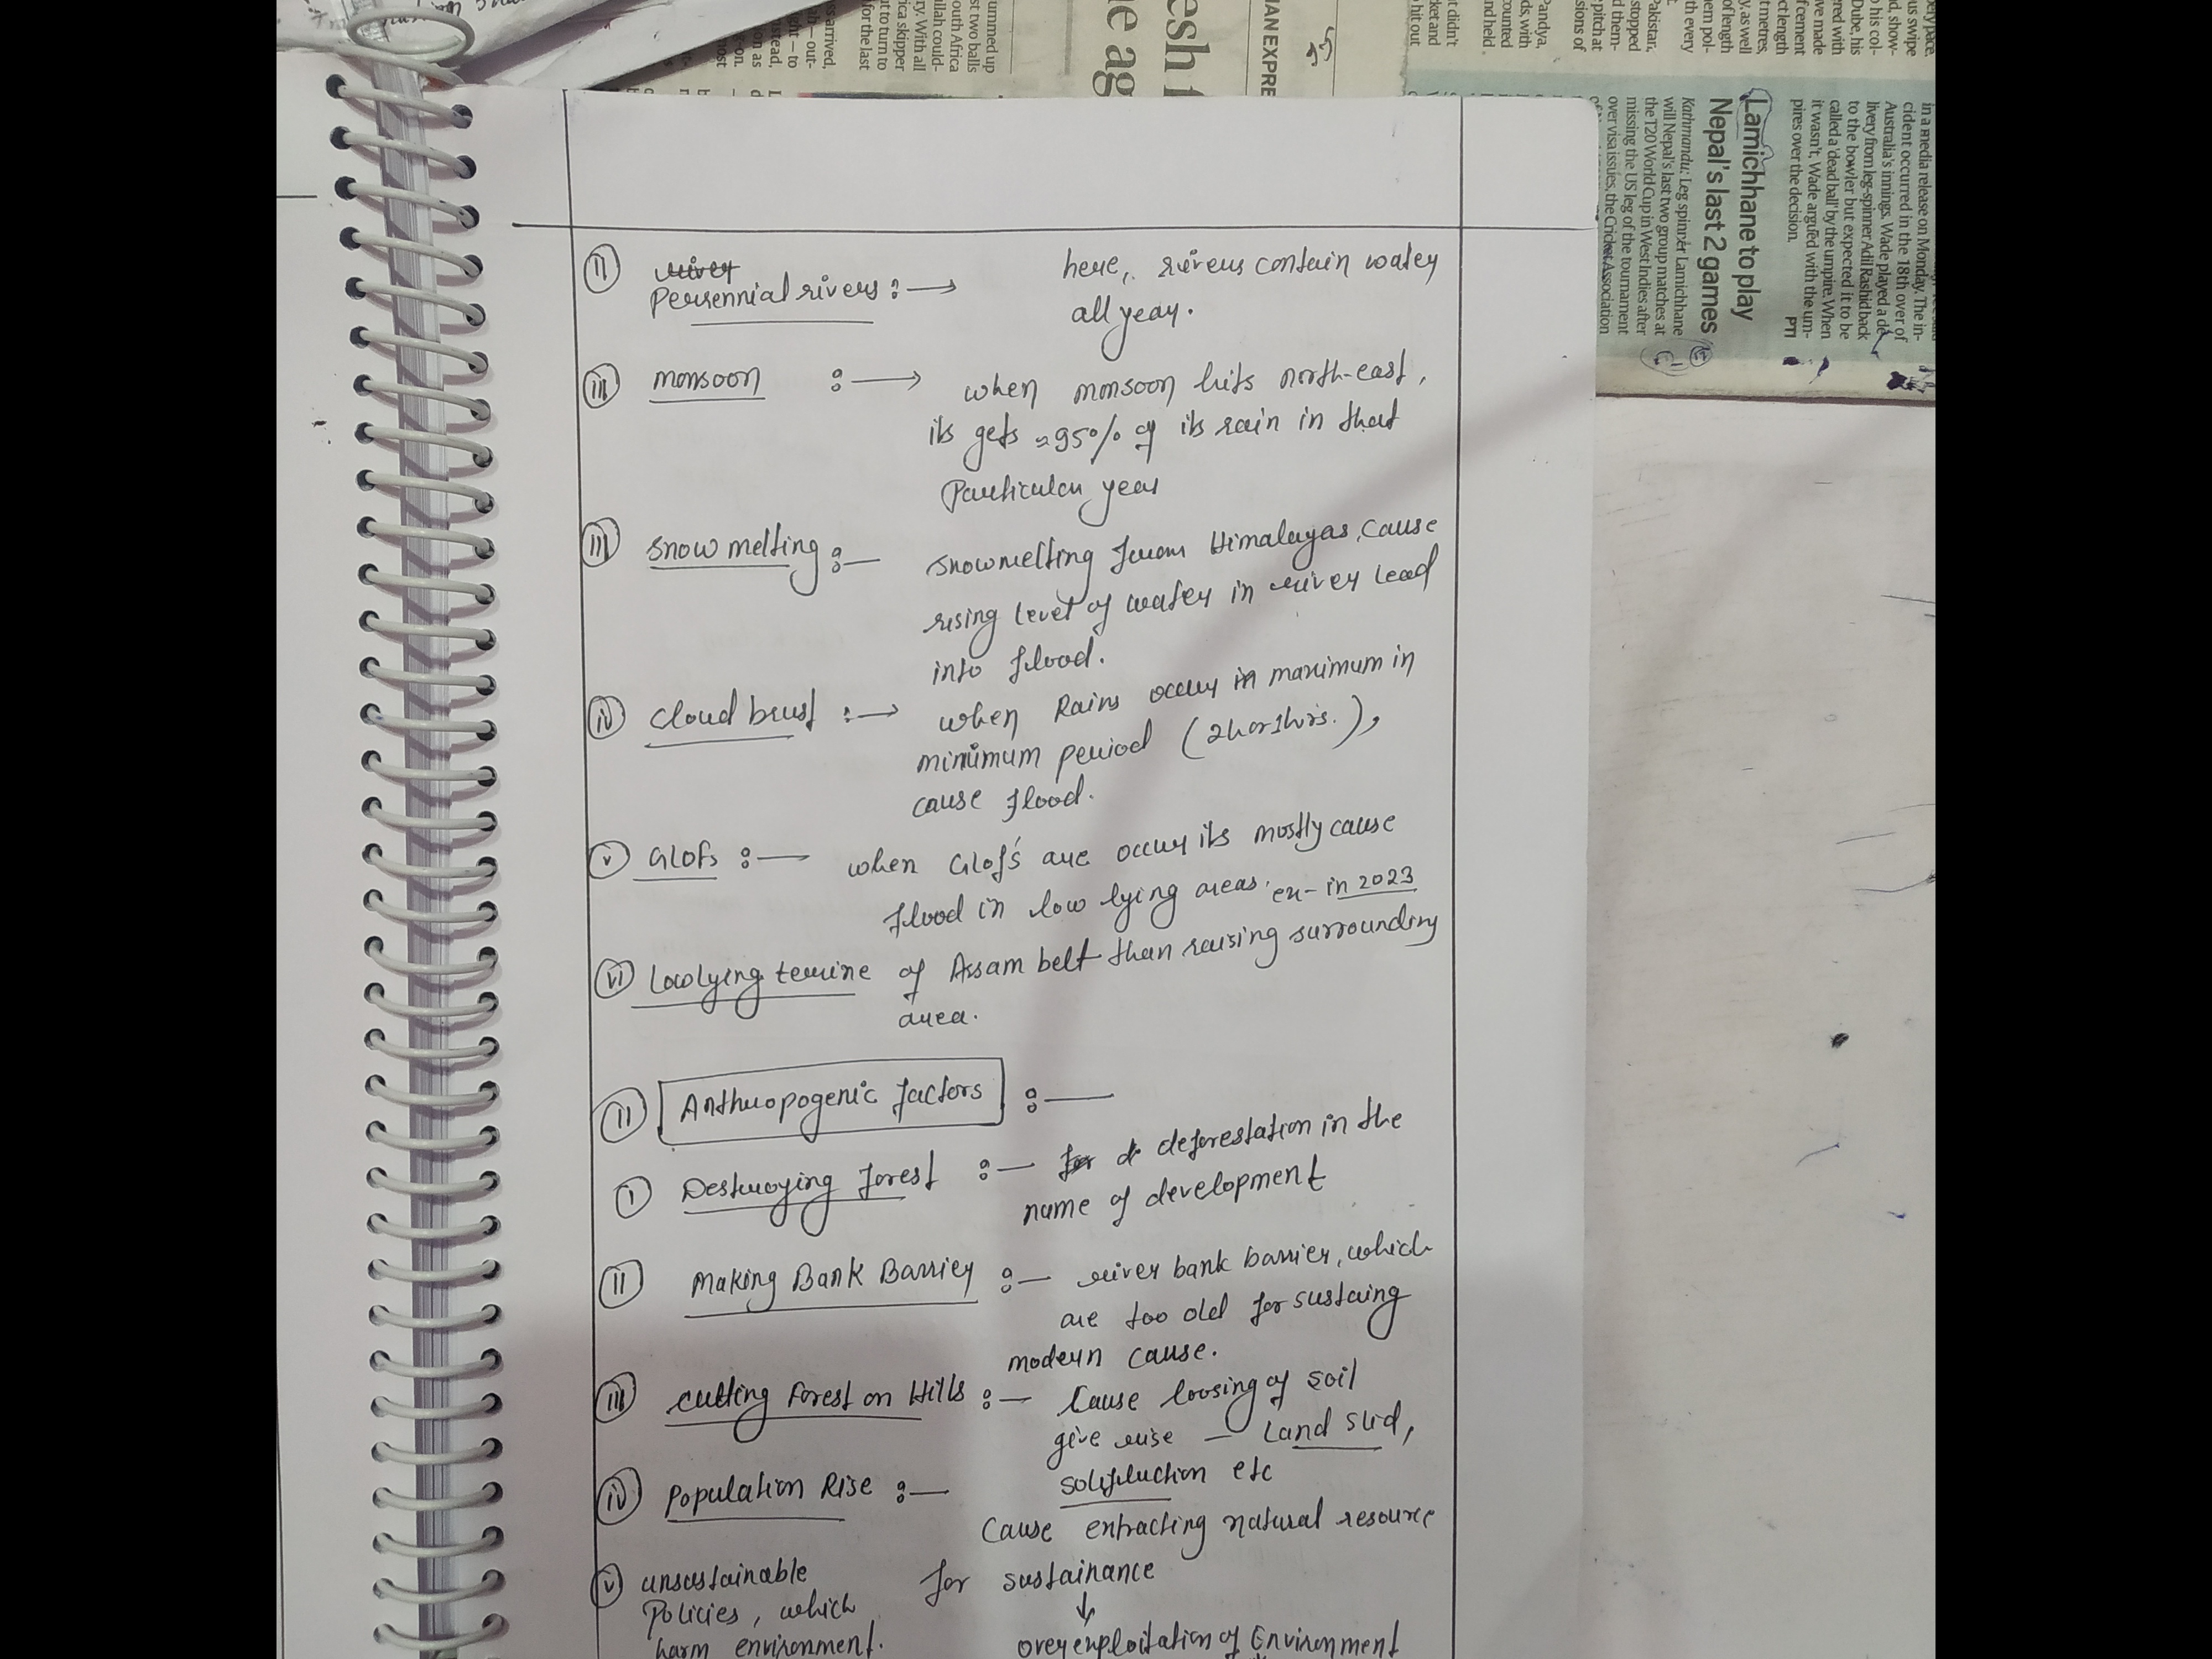 (II) river
Perennial rivers :→ here, rivers contain water
all year.
(III) monsoon :→ when monsoon hits north-east,
its gets ≈95% of its rain in that
Particular year
(III) snow melting :— snowmelting from Himalayas, cause
rising level of water in river lead
into flood.
(iv) cloud brust :→ when Rains occur in maximum in
minimum period (2hor1hrs.),
cause flood.
(v) GLOFs :— when Glof's are occur its mostly cause
flood in low lying areas. ex- in 2023
(vi) Lowlying terrine of Assam belt than raising surrounding
area.
(II) Anthropogenic factors :—
(I) Destroying forest :— for d deforestation in the
name of development
(II) Making Bank Barrier :— river bank barrier, which
are too old for sustaing
modern cause.
(III) cutting forest on Hills :— Cause loosing of soil
give rise — Land slid,
solifluction etc
(iv) Population Rise :—
Cause extracting natural resource
for sustainance
↓
overexploitation of Environment
(v) unsustainable
Policies, which
harm environment.
Lamichhane to play
Nepal's last 2 games
Kathmandu: Leg spinner Lamichhane
will Nepal's last two group matches at
the T20 World Cup in West Indies after
missing the US leg of the tournament
over visa issues, the Cricket Association
PTI
in a media release on Monday. The in-
cident occurred in the 18th over of
Australia's innings. Wade played a de-
livery from leg-spinner Adil Rashid back
to the bowler but expected it to be
called a 'dead ball' by the umpire. When
it wasn't, Wade argued with the um-
pires over the decision.
IAN EXPRE
esh
e ag